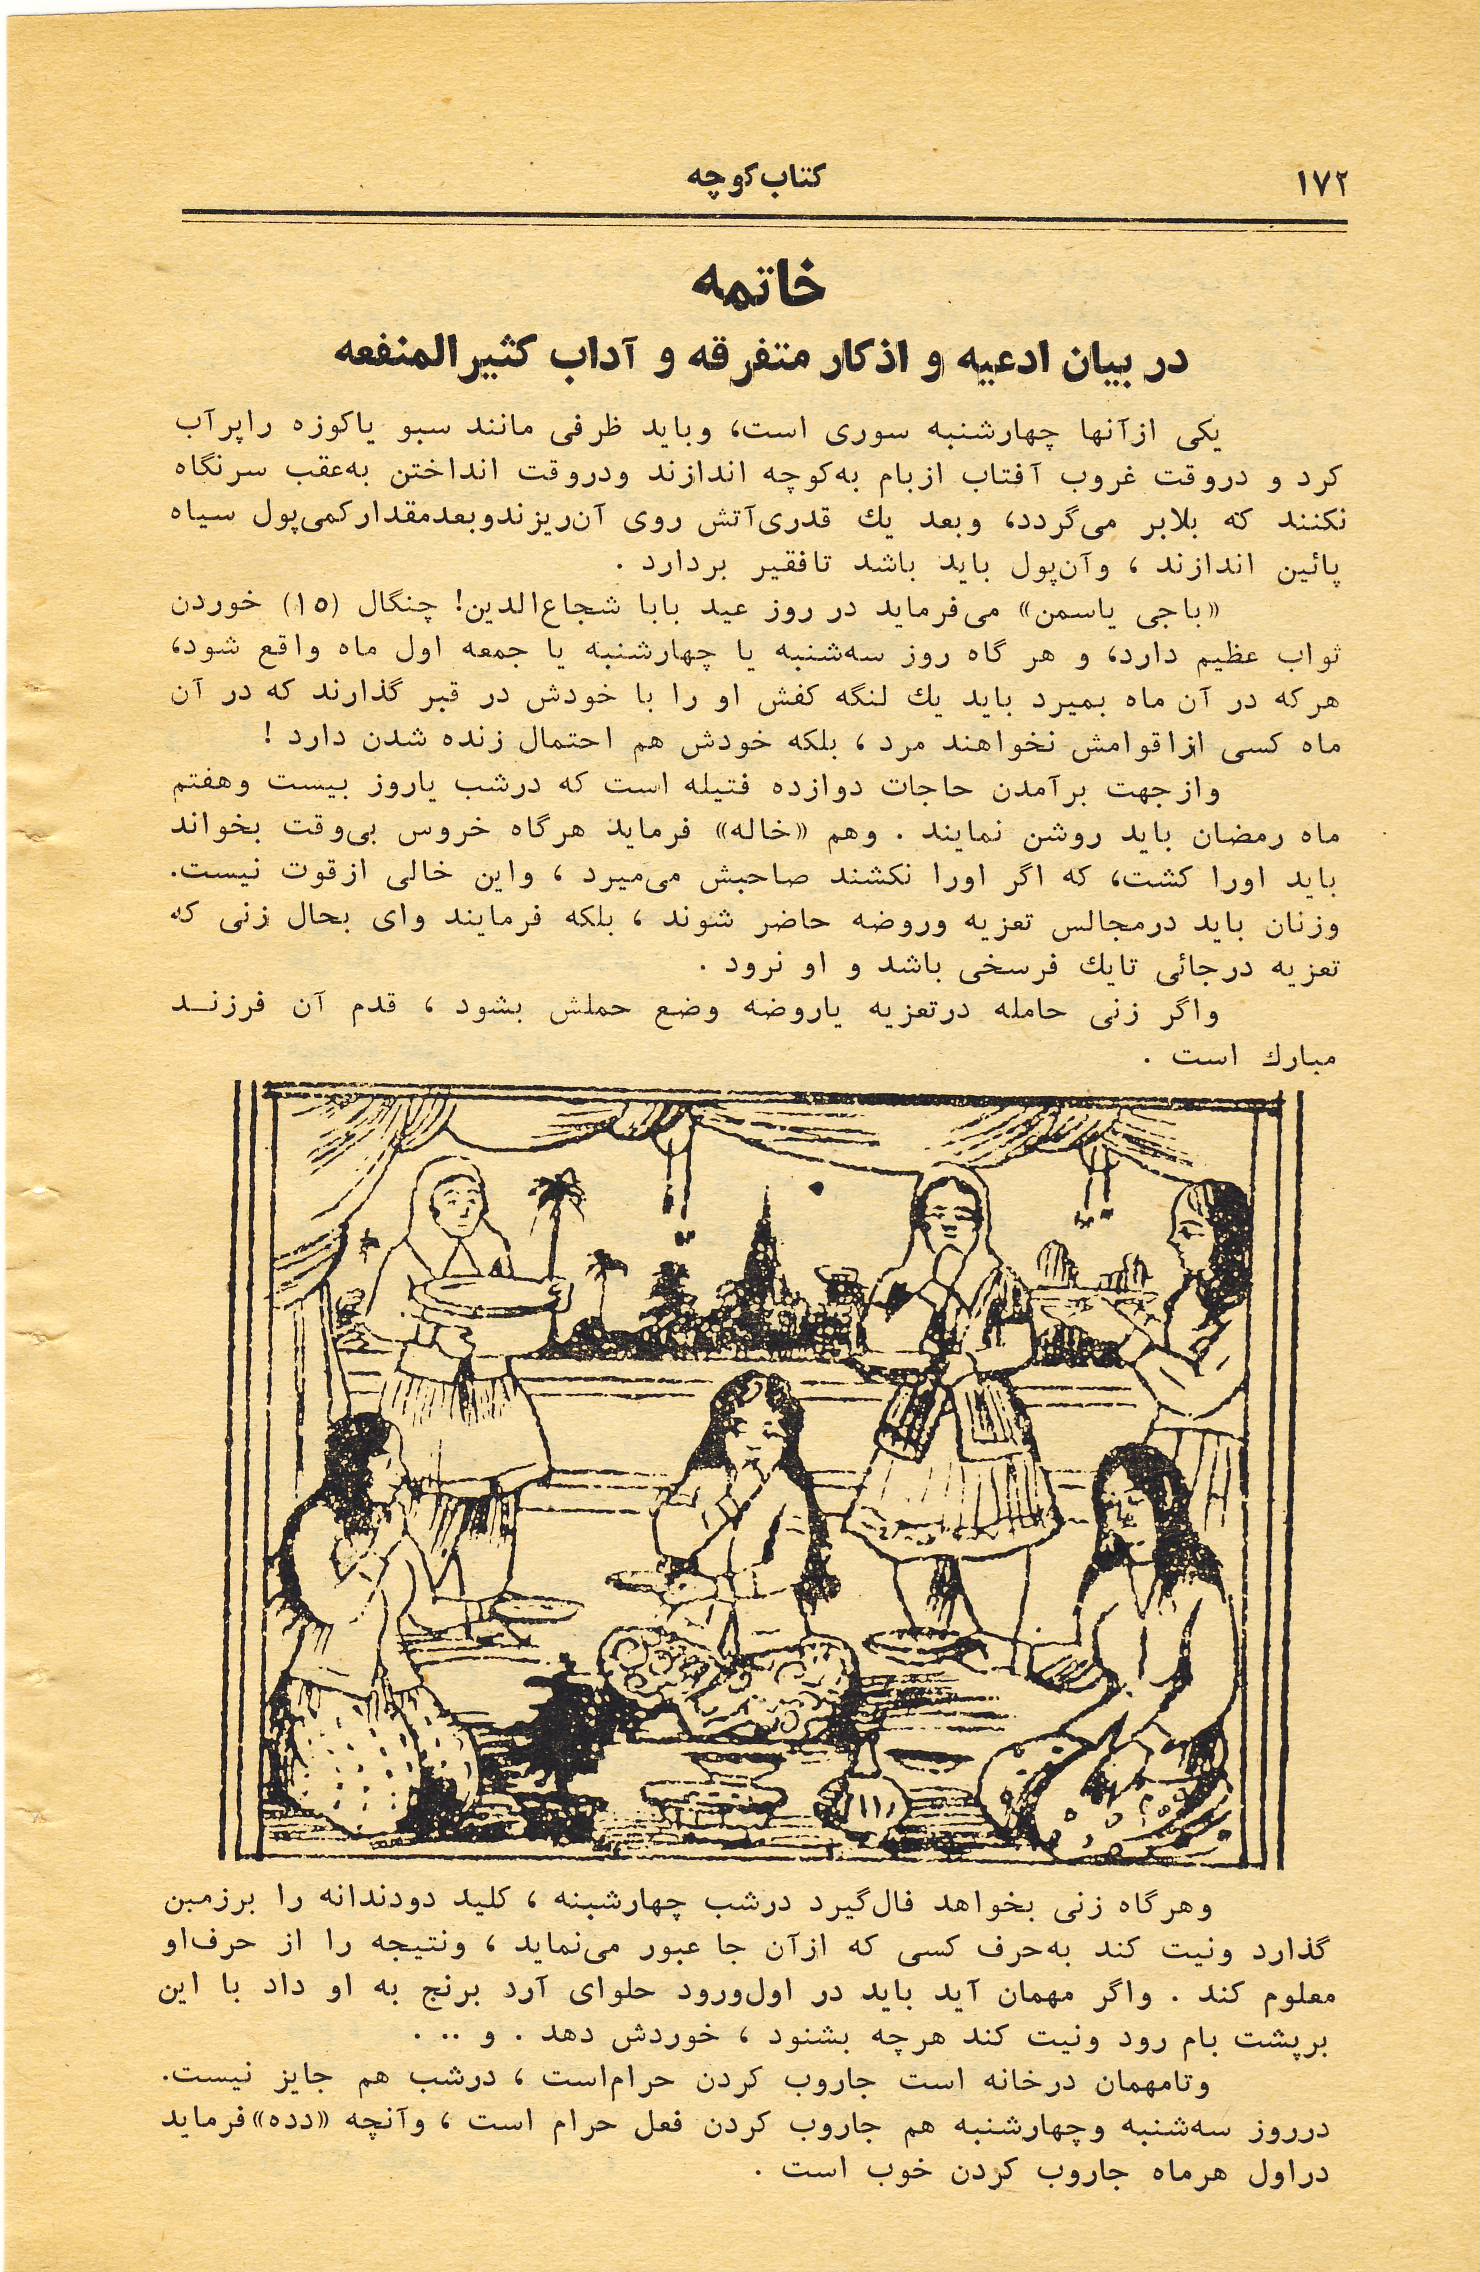 ۱۷۲
کتاب کوچه
خاتمه
در بیان ادعیه و اذکار متفرقه و آداب کثیرالمنفعه
یکی ازآنها چهارشنبه سوری است، وباید ظرفی مانند سبو یاکوزه راپرآب
کرد و دروقت غروب آفتاب ازبام به‌کوچه اندازند ودروقت انداختن به‌عقب سرنگاه
نکنند که بلابر می‌گردد، وبعد یك قدری‌آتش روی آن‌ریزندوبعدمقدارکمی‌پول سیاه
پائین اندازند ، وآن‌پول باید باشد تافقیر بردارد .
«باجی یاسمن» می‌فرماید در روز عید بابا شجاع‌الدین! چنگال (۱۵) خوردن
ثواب عظیم دارد، و هر گاه روز سه‌شنبه یا چهارشنبه یا جمعه اول ماه واقع شود،
هرکه در آن ماه بمیرد باید یك لنگه کفش او را با خودش در قبر گذارند که در آن
ماه کسی ازاقوامش نخواهند مرد ، بلکه خودش هم احتمال زنده شدن دارد !
وازجهت برآمدن حاجات دوازده فتیله است که درشب یاروز بیست وهفتم
ماه رمضان باید روشن نمایند . وهم «خاله» فرماید هرگاه خروس بی‌وقت بخواند
باید اورا کشت، که اگر اورا نکشند صاحبش می‌میرد ، واین خالی ازقوت نیست.
وزنان باید درمجالس تعزیه وروضه حاضر شوند ، بلکه فرمایند وای بحال زنی که
تعزیه درجائی تایك فرسخی باشد و او نرود .
واگر زنی حامله درتعزیه یاروضه وضع حملش بشود ، قدم آن فرزنـد
مبارك است .
وهرگاه زنی بخواهد فال‌گیرد درشب چهارشبنه ، کلید دودندانه را برزمین
گذارد ونیت کند به‌حرف کسی که ازآن جا عبور می‌نماید ، ونتیجه را از حرف‌او
معلوم کند . واگر مهمان آید باید در اول‌ورود حلوای آرد برنج به او داد با این
برپشت بام رود ونیت کند هرچه بشنود ، خوردش دهد . و .. .
وتامهمان درخانه است جاروب کردن حرام‌است ، درشب هم جایز نیست.
درروز سه‌شنبه وچهارشنبه هم جاروب کردن فعل حرام است ، وآنچه «دده»فرماید
دراول هرماه جاروب کردن خوب است .